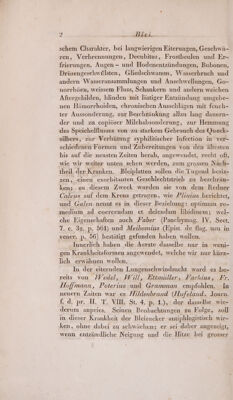 2 Blei.
schem Charakter, bei langwierigen Eiterungen, Geschwü-
ren, Verbrennungen, Decubitus, Frostbeulen und Er-
frierungen, Augen- und Hodenentzündungen, Bubonen,
Drüsengeschwülsten, Gliedschwamm, Wasserbruch und
andern Wasseransammlungen und Anschwellungen, Go-
norrhöen, weissem Fluss, Schankern und andern weichen
Aftergebilden, blinden mit hitziger Entzündung umgebe-
nen Hämorrhoiden, chronischen Ausschlägen mit feuch-
ter Aussonderung, zur Beschränkung allzu lang dauern-
der und zu copiöser Milchabsonderung, zur Hemmung
des Speichelflusses von zu starkem Gebrauch des Queck-
silbers, zur Verhütung syphilitischer Infection in ver-
schiedenen Formen und Zubereitungen von den ältesten
bis auf die neusten Zeiten herab, angewendet, recht oft,
wie wir weiter unten sehen werden, zum grossen Nach-
theil der Kranken. Bleiplatten sollen die Tugend besiz-
zen, einen exorbitanten Geschlechtstrieb zu beschrän-
ken; zu diesem Zweck wurden sie von dem Redner
Calvus auf dem Kreuz getragen, wie Plinius berichtet,
und Galen nennt es in dieser Beziehung: optimum re-
medium ad coercendam et delendam libidinem; wel-
che Eigenschaften auch Faber (Pancÿymag. IV. Sect.
7. c. 3z. p. 561) und Meibomius (Epist. de flag. usu in
vener. p. 56) bestätigt gefunden haben wollen.
Innerlich haben die Aerzte dasselbe nur in weni-
gen Krankheitsformen angewendet, welche wir nur kürz-
lich erwähnen wollen.
In der eiternden Lungenschwindsucht ward es be-
reits von Wedel, Will, Ettmüller, Fuchsius, Fr.
Hoffmann, Poterius und Gramman empfohlen. In
neuern Zeiten war es Hildenbrand (Hufeland. Journ.
f. d. pr. H. T. VIII. St. 4. p. 1.), der dasselbe wie-
derum anpries. Seinen Beobachtungen zu Folge, soll
in dieser Krankheit der Bleizucker antiphlogistisch wir-
ken, ohne dabei zu schwächen; er sei daher angezeigt,
wenn entzündliche Neigung und die Hitze bei grosser